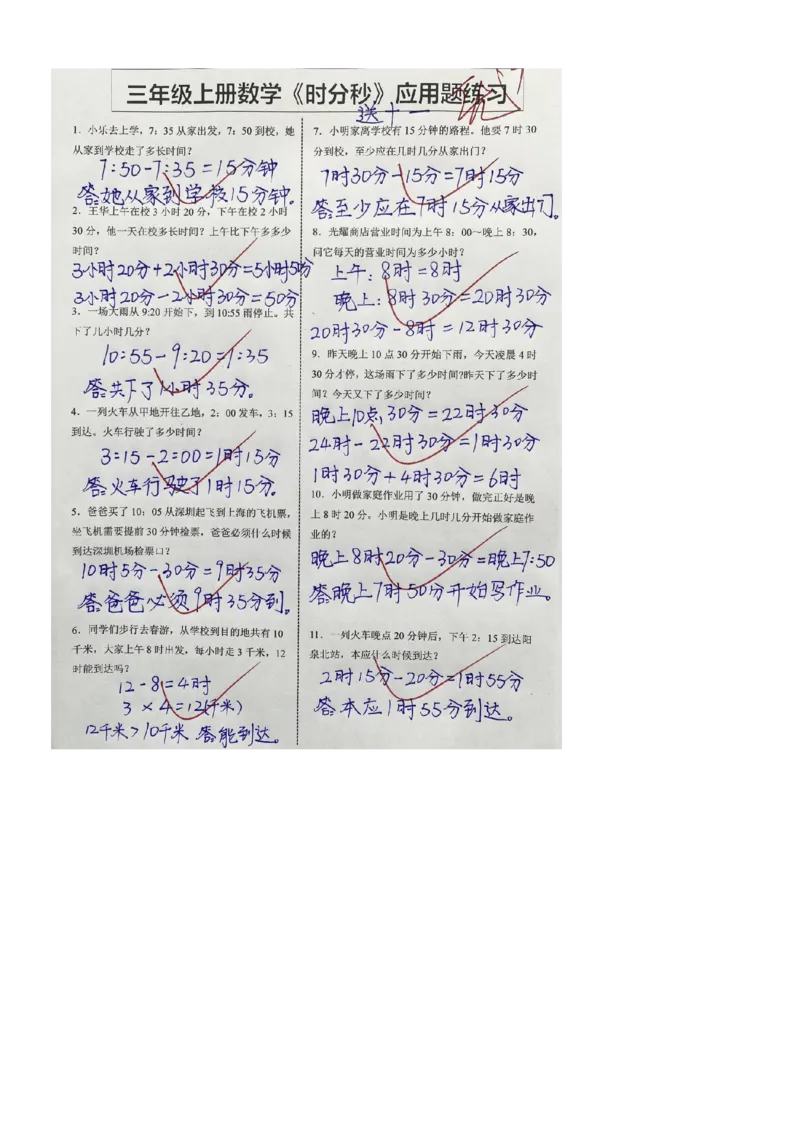 三年级上册数学《时分秒》应用题练习
1．小乐去上学，7：35从家出发，7：50到校，她
从家到学校走了多长时间？
7:50-7:35=15分钟
答:她从家到学校15分钟。
2．王华上午在校3小时20分，下午在校2小时
30分，他一天在校多长时间？上午比下午多多少
时间？
3小时20分+2小时30分=5小时50分
3小时20分-2小时30分=50分
3．一场大雨从9:20开始下，到10:55雨停止。共
下了几小时几分？
10:55-9:20=1:35
答:共下了1小时35分。
4．一列火车从甲地开往乙地，2：00发车，3：15
到达。火车行驶了多少时间？
3:15-2:00=1时15分
答:火车行驶了1时15分.
5．爸爸买了10：05从深圳起飞到上海的飞机票，
坐飞机需要提前30分钟检票，爸爸必须什么时候
到达深圳机场检票口？
10时5分-30分=9时35分
答:爸爸必须9时35分到。
6．同学们步行去春游，从学校到目的地共有10
千米，大家上午8时出发，每小时走3千米，12
时能到达吗？
12-8=4时
3×4=12(千米)
12千米>10千米 答:能到达。
7．小明家离学校有15分钟的路程。他要7时30
分到校，至少应在几时几分从家出门？
7时30分-15分=7时15分
答:至少应在7时15分从家出门。
8．光耀商店营业时间为上午8：00～晚上8：30，
问它每天的营业时间为多少小时？
上午:8时=8时
晚上:8时30分=20时30分
20时30分-8时=12时30分
9．昨天晚上10点30分开始下雨，今天凌晨4时
30分才停，这场雨下了多少时间?昨天下了多少时
间？今天又下了多少时间？
晚上10点30分=22时30分
24时-22时30分=1时30分
1时30分+4时30分=6时
10．小明做家庭作业用了30分钟，做完正好是晚
上8时20分。小明是晚上几时几分开始做家庭作
业的？
晚上8时20分-30分=晚上7:50
答:晚上7时50分开始写作业。
11．一列火车晚点20分钟后，下午2：15到达阳
泉北站，本应什么时候到达？
2时15分-20分=1时55分
答:本应1时55分到达。